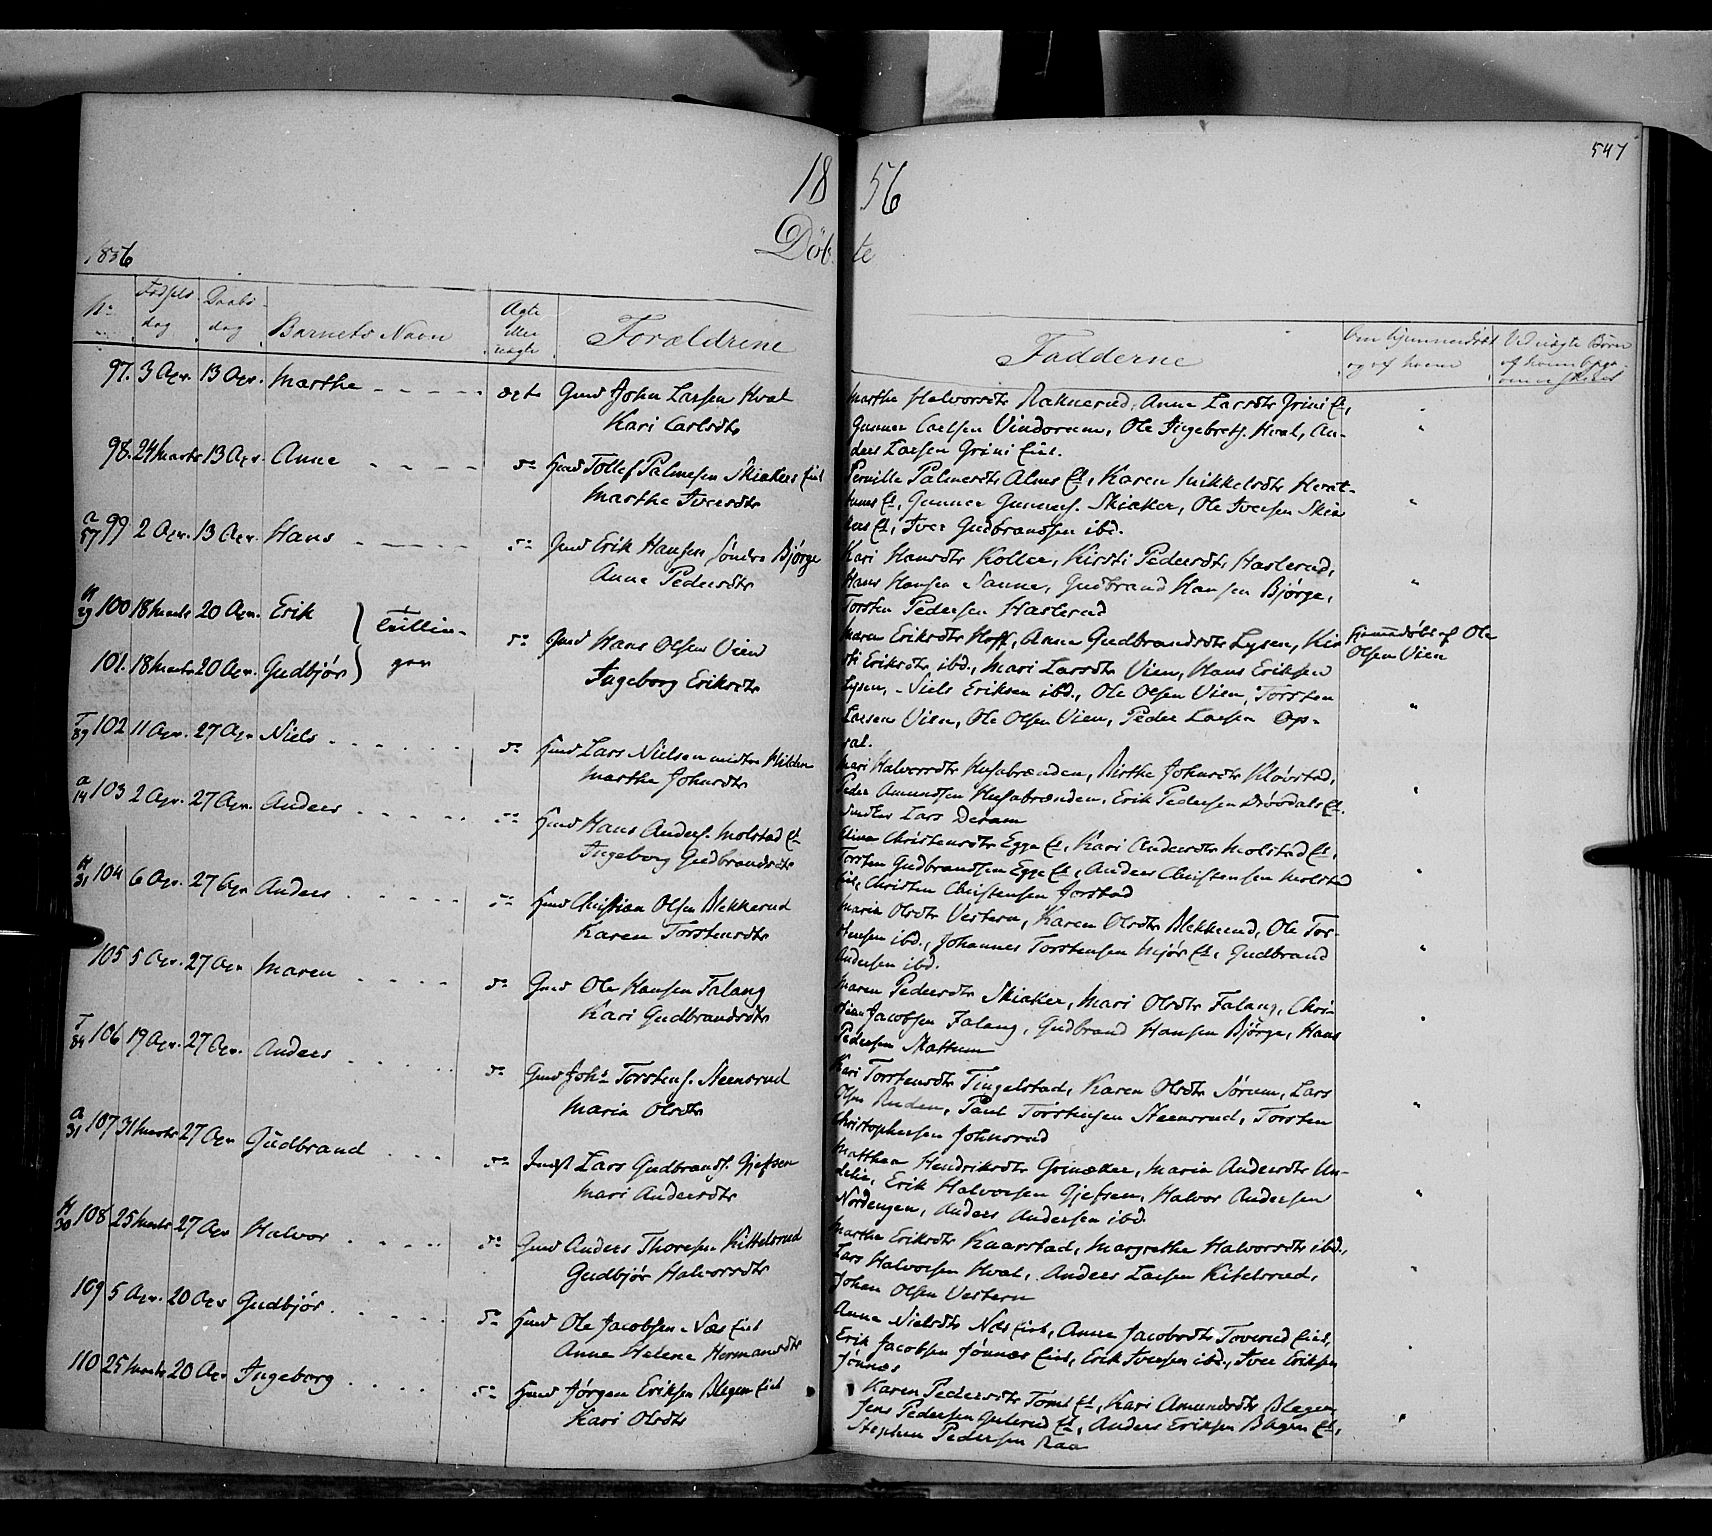 547
18 56
Døb te
1856
No Fødsels dag Daabs dag Barnets Navn Ægte eller uægte Forældrene
Fadderne Om hjemmedøbt og af hvem Ved uægte Børn
97. 3 Apr. 13 Apr. Marthe - - - - ægte Gmd John Larsen Hval
Kari Carlsdtr
Marthe Halvorsdtr Raknerud, Anne Larsdtr Grini Et,
Gunner Carlsen Vindorum, Ole Ingebrets. Hval, An-
ders Larsen Grini Eiet.
98. 24 Marts 13 Apr. Anne - - - - do Hmd Tollef Palmesen Skiakers Eiet
Marthe Iversdtr
Pernille Palmesdtr Alms Et, Karen Mikkelsdtr Hval-
Gunner Gunners. Skiaker, Ole Iversen Skia
kers Et, Iver Gudbrandsen ibd.
a 57 99 2 Apr. 13 Apr. Hans - - - - do Gmd Erik Hansen Søndre Bjørge
Anne Pedersdtr
Kari Hansdtr Koller, Kirsti Pedersdtr Haslerud,
Hans Hansen Sanne, Gudbrand Hansen Bjørge,
Torsten Pedersen Haslerud
H 29 100 18 Marts 20 Apr. Erik } Tvillin- do Gmd Hans Olsen Vien
101. 18 Marts 20 Apr. Gudbjør } ger
Ingeborg Eriksdtr
Maren Eriksdtr Hoff, Anne Gudbrandsdtr Lysen, Kir
sti Eriksdtr ibd., Mari Larsdtr Vien, Hans Eriksen
Lysen, Niels Eriksen ibd., Ole Olsen Vien, Torsten
Larsen Vien, Ole Olsen Vien, Peder Larsen Op-
sal.
Hjemmedøbt af Ole
Olsen Vien
T 89 102 11 Apr. 27 Apr. Niels - - - - do Hmd Lars Nielsen midtre Hilden
Marthe Johnsdtr
Mari Halvorsdtr Husabrænden, Birthe Johnsdtr Kløvstad,
Peder Amundsen Husabrænden, Erik Pedersen Et.
Lars Deram
a 14 103 2 Apr. 27 Apr. Anders - - - - do Hmd Hans Anders. Molstad Et
Ingeborg Gudbrandsdtr
Christensdtr Egge Et, Kari Andersdtr Molstad Et,
Torsten Gudbrandsen Egge Et, Anders Christensen Molstad
Eiet, Christen Christensen Jorstad
H 31 104 6 Apr. 27 Apr Anders - - - - do Hmd Christian Olsen Blekkerud
Karen Torstensdtr
Maria Olsdtr Vestern, Karen Olsdtr Blekkerud, Ole Tor-
stensen ibd., Johannes Torstensen Mjør Et, Gudbrand
Andersen ibd.
105 5 Apr. 27 Apr Maren - - - - do Gmd Ole Hansen Falang
Kari Gudbrandsdtr
Maren Pedersdtr Skiaker, Mari Olsdtr Falang, Chri-
stian Jacobsen Falang, Gudbrand Hansen Bjørge, Hans
Pedersen Mattum
T 84 106 19 Apr. 27 Apr. Anders - - - - do Gmd Johs Torstens. Steensrud
Maria Olsdtr
Kari Torstensdtr Tingelstad, Karen Olsdtr Sørum, Lars
Olsen Ruden, Paul Torstensen Steensrud, Torsten
Christophersen Johnsrud
a 31 107 31 Marts 27 Apr Gudbrand - - - do Lars Gudbrands. Gjefsen
Mari Andersdtr
Matthea Hendriksdtr Grinaker, Maria Andersdtr Un-
delie, Erik Halvorsen Gjefsen, Halvor Andersen
Nordengen, Anders Andersen ibd.
H 30 108 25 Marts 27 Apr Halvor - - - - do Gmd Anders Thoresen Kittelsrud
Gudbjør Halvorsdtr
Marthe Eriksdtr Kaarstad, Margrethe Halvorsdtr ibd.,
Lars Halvorsen Hval, Anders Larsen Kitelsrud,
Johan Olsen Vestern
109 5 Apr. 20 Apr Gudbjør - - - - do Hmd Ole Jacobsen Næs Eiet
Anne Helene Hermansdtr
Anne Nielsdtr Næs Eiet, Anne Jacobsdtr Toverud Eiet,
Erik Jacobsen Jønnes Eiet, Erik Iversen ibd., Iver Eriksen
Jønnes
110 25 Marts 20 Apr Ingeborg - - - - do Hmd Jørgen Eriksen Blegen Eiet
Kari Olsdtr
Karen Pedersdtr Toms Et, Kari Amundsdtr Blegen
Jens Pedersen Gulerud Et, Anders Eriksen Blegen Et,
Stephen Pedersen Raa